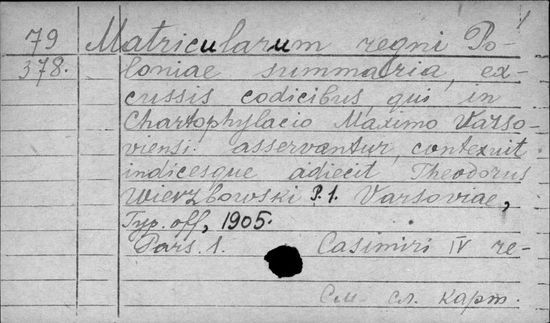 1
79 Matricularum regni Po-
378. loniae summaria, ex-
cussis codicibus, qui in
Chartophylacio Maximo Varso-
viensi asservantur, contexuit
indicesque adiecit Theodorus
Wierzbowski P.1. Varsoviae,
Typ. off, 1905.
Pars. 1. Casimiri IV re-
См. сл. карт.